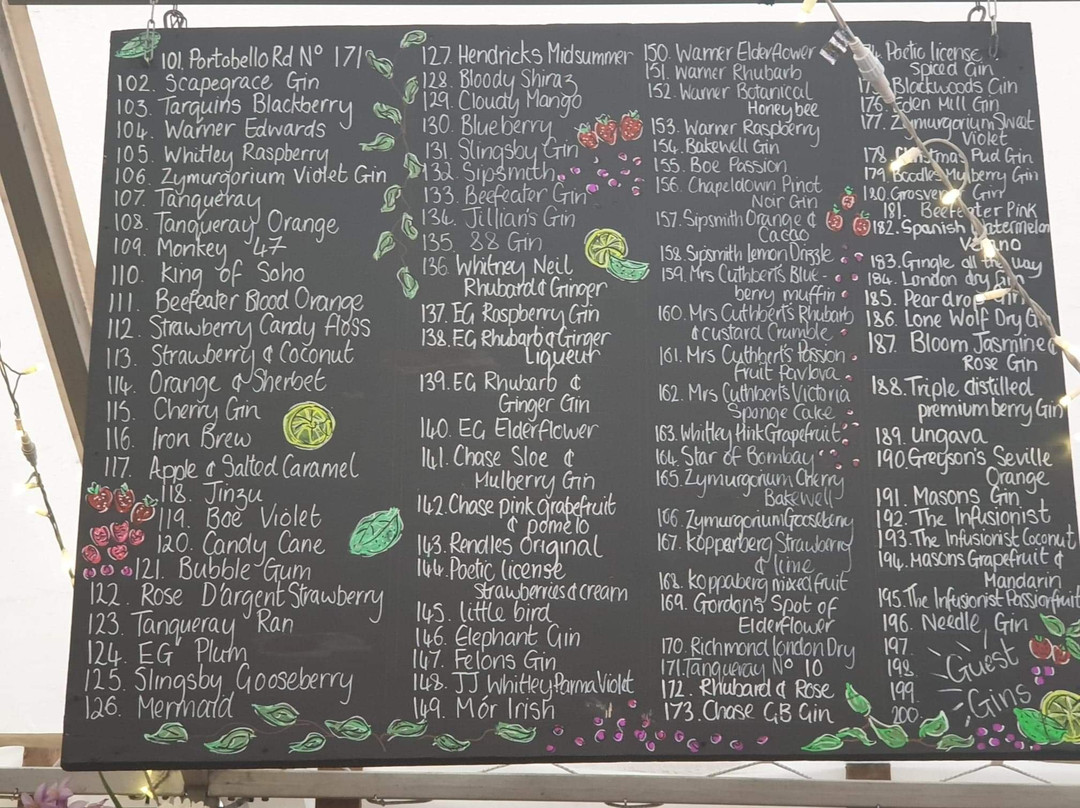 101. Portobello Rd Nº 171
102. Scapegrace Gin
103. Tarquins Blackberry
104. Warner Edwards
105. Whitley Raspberry
106. Zymurgorium Violet Gin
107. Tanqueray
108. Tanqueray Orange
109. Monkey 47
110. King of Soho
111. Beefeater Blood Orange
112. Strawberry Candy floss
113. Strawberry & Coconut
114. Orange & Sherbet
115. Cherry Gin
116. Iron Brew
117. Apple & Salted Caramel
118. Jinzu
119. Boe Violet
120. Candy Cane
121. Bubble Gum
122. Rose D'argent Strawberry
123. Tanqueray Ran
124. EG Plum
125. Slingsby Gooseberry
126. Mermaid
127. Hendricks Midsummer
128. Bloody Shiraz
129. Cloudy Mango
130. Blueberry
131. Slingsby Gin
132. Sipsmith
133. Beefeater Gin
134. Jillian's Gin
135. 88 Gin
136. Whitney Neil
Rhubard & Ginger
137. EG Raspberry Gin
138. EG Rhubarb & Ginger
Liqueur
139. EG Rhubarb &
Ginger Gin
140. EG Elderflower
141. Chase Sloe &
Mulberry Gin
142. Chase pink grapefruit
& pomelo
143. Rendles Original
144. Poetic license
Strawberries & cream
145. little bird
146. Elephant Gin
147. Felons Gin
148. JJ Whitley Parma Violet
149. Mór Irish
150. Warner Elderflower
151. Warner Rhubarb
152. Warner Botanical
Honeybee
153. Warner Raspberry
154. Bakewell Gin
155. Boe Passion
156. Chapeldown Pinot
Noir Gin
157. Sipsmith Orange &
Cacao
158. Sipsmith lemon Drizzle
159. Mrs Cuthberts Blue-
berry muffin
160. Mrs Cuthberts Rhubarb
& custard Crumble
161. Mrs Cuthberts Passion
fruit Pavlova
162. Mrs Cuthberts Victoria
Sponge Cake
163. Whitley Pink Grapefruit
164. Star of Bombay
165. Zymurgorium Cherry
Bakewell
166. Zymurgorium Gooseberry
167. Kopparberg Strawberry
& lime
168. Koppaberg mixed fruit
169. Gordon's Spot of
Elderflower
170. Richmond London Dry
171. Tanqueray Nº 10
172. Rhubard & Rose
173. Chase GB Gin
Poetic license
Spiced Gin
Blackwoods Gin
176. Eden Mill Gin
177. Zymurgorium Sweet
Violet
178. Christmas Pud Gin
179. Boodles Mulberry Gin
180. Gin
181. Beefeater Pink
182. Spanish Watermelon
183. Gingle all the way
184. London dry Gin
185. Pear drop Gin
186. Lone Wolf Dry
187. Bloom Jasmine &
Rose Gin
188. Triple distilled
premium berry Gin
189. Ungava
190. Greyson's Seville
Orange
191. Masons Gin
192. The Infusionist
193. The Infusionist Coconut
194. Masons Grapefruit &
Mandarin
195. The Infusionist Passionfruit
196. Needle Gin
197.
198.
199.
200.
Guest
Gins